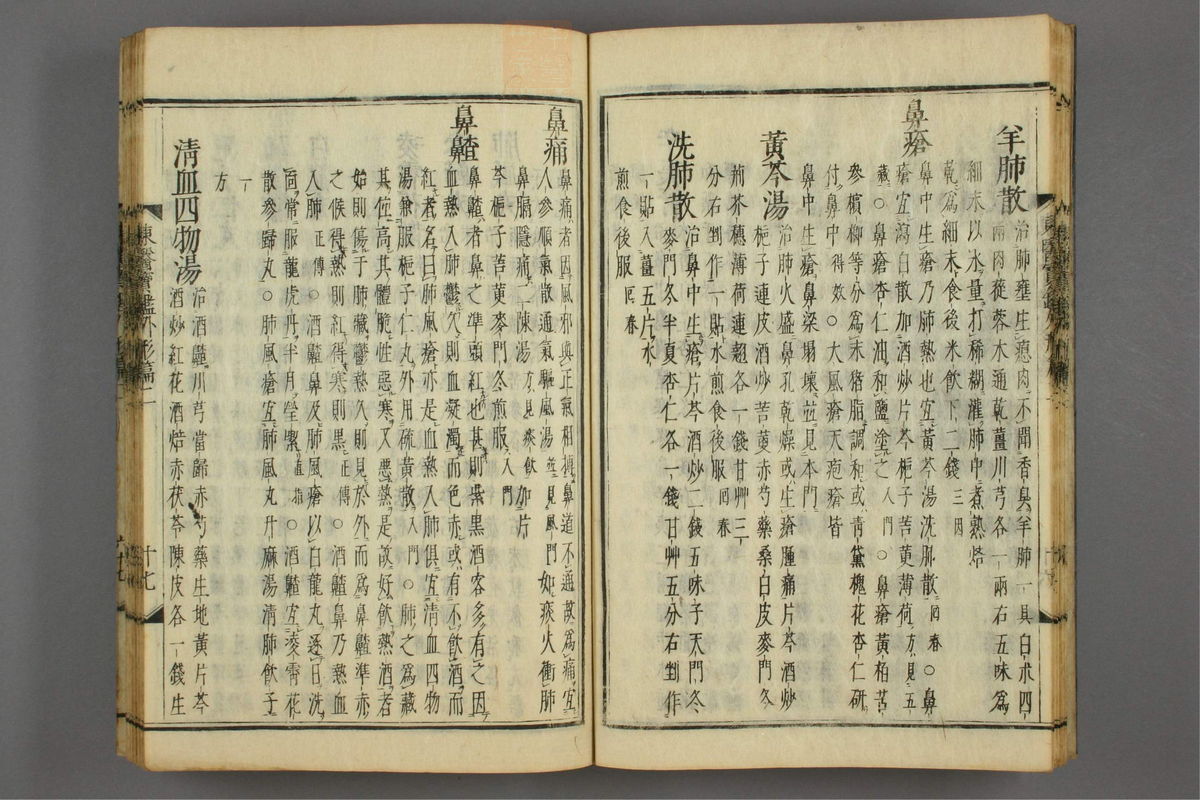 羊肺散 治肺壅生瘜肉不聞香臭羊肺一具白朮四
兩肉蓯蓉木通乾薑川芎各一兩右五味爲
細末以水量打稀糊灌肺中煮熟焙
乾爲細末食後米飮下二錢 三因
鼻瘡 鼻中生瘡乃肺熱也宜黃芩湯洗肺散 回春○鼻
瘡宜瀉白散加酒炒片芩梔子苦黃薄荷 方見五
藏○鼻瘡杏仁油和鹽塗之 入門○鼻瘡黃栢苦
參檳榔等分爲末猪脂調和或靑黛槐花杏仁硏
付鼻中 得效○風瘡天疱瘡皆
鼻中生瘡鼻梁塌壞並見本門
黃芩湯 治肺火盛鼻孔乾燥或生瘡腫痛片芩酒炒
梔子連皮酒炒苦莄赤芍藥桑白皮麥門冬
荊芥穗薄荷連翹各一錢甘艸三
分右剉作一貼水煎食後服 回春
洗肺散 治鼻中生瘡片芩酒炒二錢五味子天門冬
麥門冬半夏杏仁各一錢甘艸五分右剉作
一貼入薑五片水
煎食後服 回春
鼻痛 鼻痛者因風邪與正氣相搏鼻道不通故爲痛宜
人參順氣散通氣驅風湯 並見風門如痰火衝肺
鼻膈隱痛二陳湯 方見痰飮加片
芩梔子苦黃麥門冬煎服 入門
鼻齇 鼻齇者鼻之準頭紅也甚則紫黑酒客多有之因
血熱入肺鬱久則血凝濁而色赤或有不飮酒而
紅者名曰肺風瘡亦是血熱入肺俱宜淸血四物
湯兼服梔子仁丸外用硫黃散 入門○肺之爲藏
其位高其體脆性惡寒又惡熱是故好飮熱酒者
始則傷于肺藏鬱熱久則見於外而爲鼻齇準赤
之候得熱則紅得寒則黑 正傳○酒齇鼻乃熱血
入肺 正傳○酒齇鼻及肺風瘡以白龍丸逐日洗
面常服龍虎丹半月瑩潔 直指○酒齇宜凌霄花
散參歸丸○肺風瘡宜肺風丸升麻湯淸肺飮子
方
淸血四物湯 治酒齇川芎當歸赤芍藥生地黃片芩
酒炒紅花酒焙赤茯苓陳皮各一錢生
東醫寶鑑外形篇二
十七